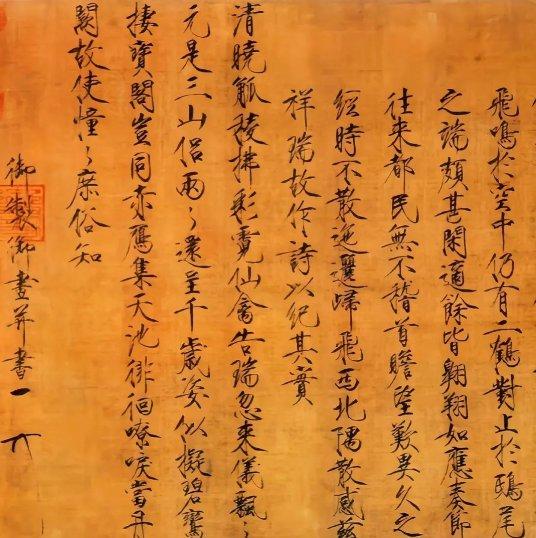 飛鳴於空中仍有二鶴對止於鴟尾
之端頗甚閑適餘皆翺翔如應奏節
往来都民無不稽首瞻望歎異久之
經時不散迤邐歸飛西北隅散感茲
祥瑞故作詩以紀其實
清曉觚稜拂彩霓仙禽告瑞忽来儀飄〻
元是三山侣兩〻還呈千歳姿似擬碧鸞
棲寶閣豈同赤鴈集天池徘徊嘹唳當丹
闕故使憧〻庶俗知
御製御畫并書